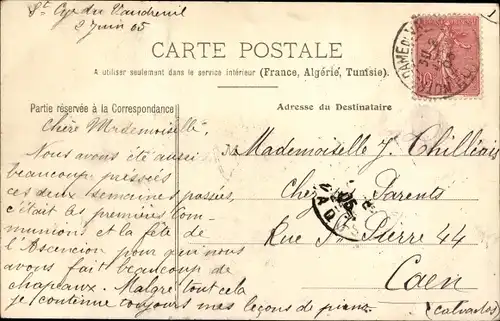 St Cyr du Vaudreuil
2 Juin 05
CARTE POSTALE
A utiliser seulement dans le service intérieur (France, Algérie, Tunisie).
Partie réservée à la Correspondance
Adresse du Destinataire
Chère Mademoiselle,
Nous avons été aussi
beaucoup pressés
ces deux semaines passées,
c'était les premières com-
munions et la fête de
l'Ascencion pour qui nous
avons fait beaucoup de
chapeaux. Malgré tout cela
je continue toujours mes leçons de piano.
Mademoiselle J. Thilléais
Chez ses Parents
Rue St Pierre 44
Caen
(Calvados)